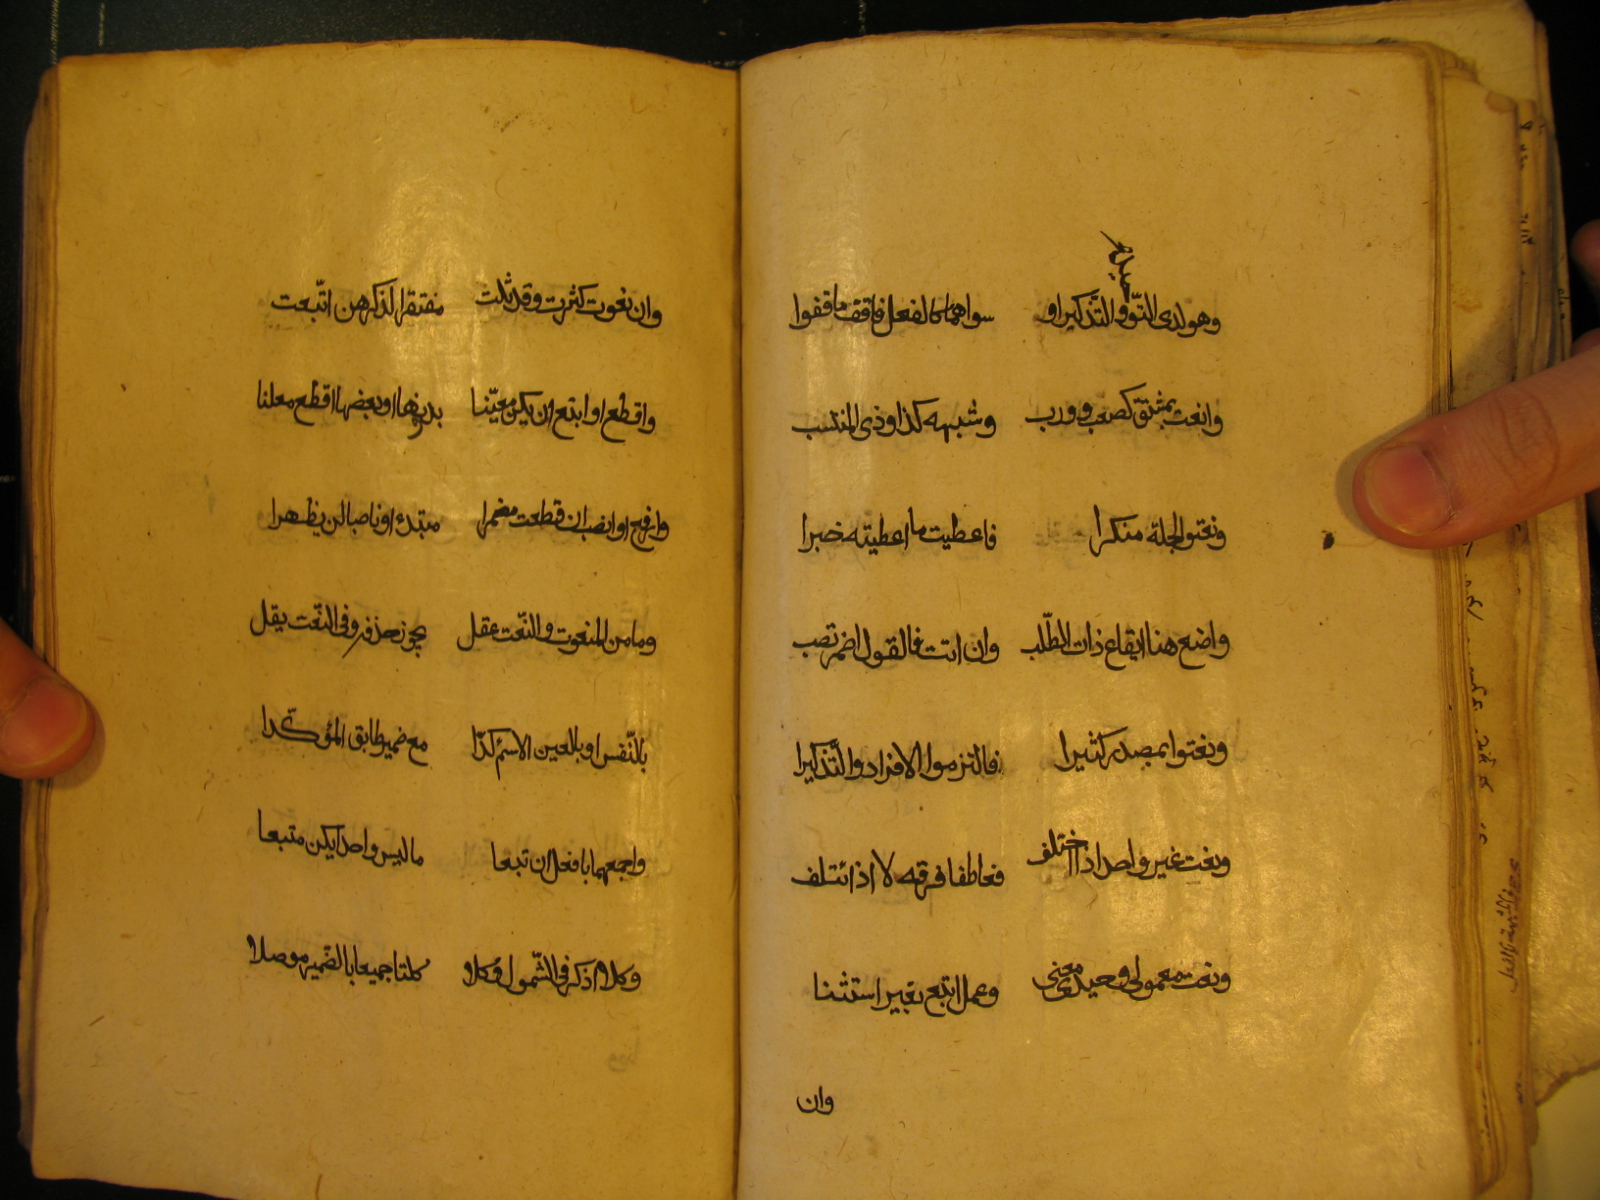 وهو لدى التّو والتّذكير او سواهما كالفعل فاقف ما قفوا
حيد
وانعت بمشتق كصعب وذرب وشبهه كذا وذى المنتسب
ونعتوا بجملة منكرا فاعطيت ما اعطيته خبرا
وامنع هنا ايقاع ذات الطّلب وان اتت فالقول اضمر تصب
ونعتوا بمصدر كثيرا فالتزموا الافراد والتّذكيرا
ونعت غير واحد اذا اختلف فعاطفا فرقه لا اذ ائتلف
ونعت معمولى وحيدى معنى وعمل اتبع بغير استثنا
وان
وان نعوت كثرت وقد تلت مفتقرا لذكرهن اتّبعت
واقطع او اتبع ان يكن معيّنا بدونها او بعضها اقطع معلنا
وارفع او انصب ان قطعت مضمرا مبتدء او ناصبا لن يظهرا
وما من المنعوت والنّعت عقل يجوز حذفه وفى النّعت يقل
بالنّفس او بالعين الاسم كدّا مع ضمير طابق المؤكّدا
واجمعهما بافعل ان تبعا ما ليس واحدا يكن متبعا
وكلا اذكر فى الشّمول وكلا كلتا جميعا بالضّمير موصلا